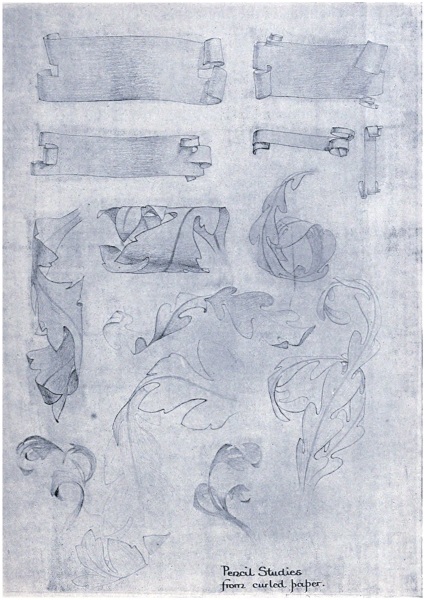 Pencil Studies
from curled paper.